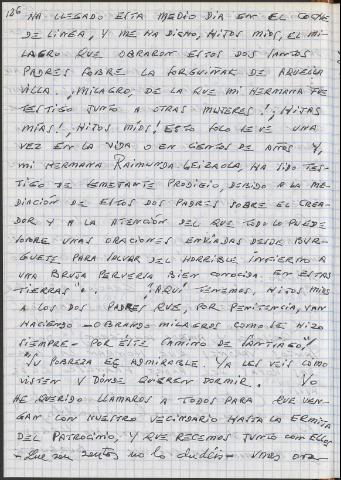 106
HA LLEGADO ESTA MEDIO DIA EN EL COCHE
DE LINEA, Y ME HA DICHO, HIJOS MIOS, EL MI-
LAGRO QUE OBRARON ESTOS DOS SANTOS
PADRES SOBRE LA SORGUIÑAK DE AQUELLA
VILLA. ¡MILAGRO, DE LA QUE MI HERMANA FUE
TESTIGO JUNTO A OTRAS MUJERES!¡HIJAS
MIAS!¡HIJOS MIOS! ESTO SOLO LE VE UNA
VEZ EN LA VIDA O EN CIENTOS DE AÑOS Y,
MI HERMANA RAIMUNDA LEIZAOLA, HA SIDO TES-
TIGO DE SEMEJANTE PRODIGIO, DEBIDO A LA ME-
DIACIÓN DE ESTOS DOS PADRES SOBRE EL CREA-
DOR Y A LA ATENCIÓN DEL QUE TODO LO PUEDE
SOBRE UNAS ORACIONES ENVIADAS DESDE BUR-
GUETE PARA SALVAR DEL HORRIBLE INFIERNO A
UNA BRUJA PERVERSA BIEN CONOCIDA EN ESTAS
TIERRAS". "¡AQUI TENEMOS, HIJOS MIOS
A LOS DOS PADRES QUE, POR PENITENCIA, VAN
HACIENDO - OBRANDO MILAGROS COMO SE HIZO
SIEMPRE - POR ESTE CAMINO DE SANTIAGO!"
"SU POBREZA ES ADMIRABLE. YA LES VEIS COMO
VISTEN Y DONDE QUIEREN DORMIR. YO
HE QUERIDO LLAMAROS A TODOS PARA QUE VEN-
GAN CON NUESTRO VECINDARIO HASTA LA ERMITA
DEL PATROCINIO, Y QUE RECEMOS JUNTO CON ELLOS
- Que son santos no lo dudéis - unas ora-